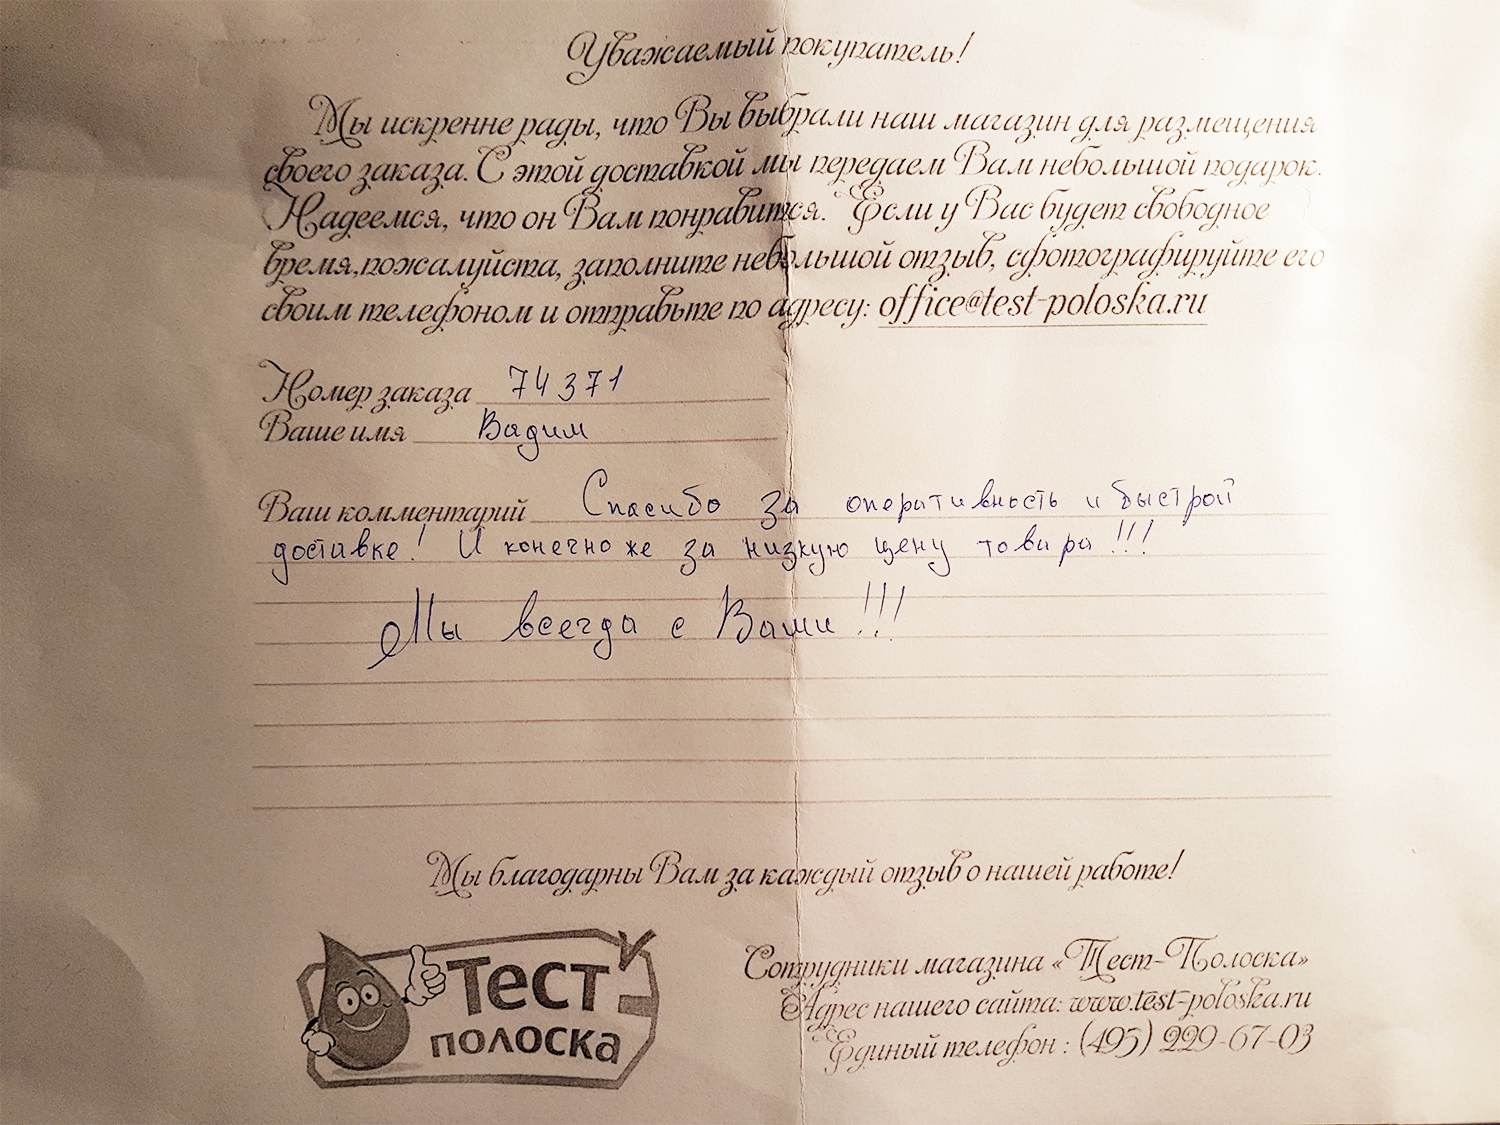 Уважаемый покупатель!
Мы искренне рады, что Вы выбрали наш магазин для размещения
своего заказа. С этой доставкой мы передаем Вам небольшой подарок.
Надеемся, что он Вам понравится. Если у Вас будет свободное
время,пожалуйста, заполните небольшой отзыв, сфотографируйте его
своим телефоном и отправьте по адресу: office@test-poloska.ru
Номер заказа 74371
Ваше имя Вадим
Ваш комментарий Спасибо за оперативность и быстрой
доставке! И конечно же за низкую цену товара!!!
Мы всегда с Вами!!!
Мы благодарны Вам за каждый отзыв о нашей работе!
Тест
полоска
Сотрудники магазина «Тест-Полоска»
Адрес нашего сайта: www.test-poloska.ru
Единый телефон : (495) 229-67-03